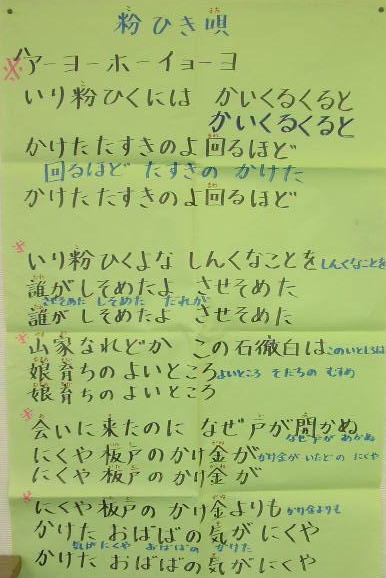 粉ひき唄
ハアーヨーホーイョーヨ
いり粉ひくには かいくるくると
かいくるくると
かけたたすきのよ回るほど
回るほど たすきの かけた
かけたたすきのよ回るほど
いり粉ひくよな しんくなことを しんくなことを
誰がしそめたよ させそめた
させそめた しそめた だれが
誰がしそめたよ させそめた
山家なれどか この石徹白は
娘育ちのよいところ よいところ そだちの むすめ
娘育ちのよいところ
会いに来たのに なぜ戸が開かぬ
なぜ戸が あかぬ
にくや板戸のかけ金が かけ金が いたどの にくや
にくや板戸のかけ金が
にくや板戸のかけ金よりも かけ金よりも
かけた おばばの気がにくや
気がにくや おばばの かけた
かけた おばばの気がにくや